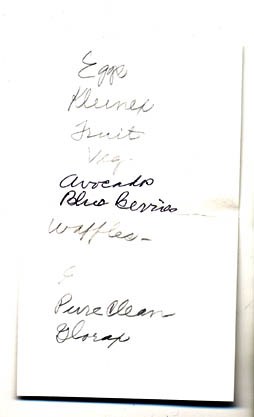 Eggs
Kleenex
Fruit
Veg.
Avocados
Blue Berries
Waffles -
Pure Clean
Clorax